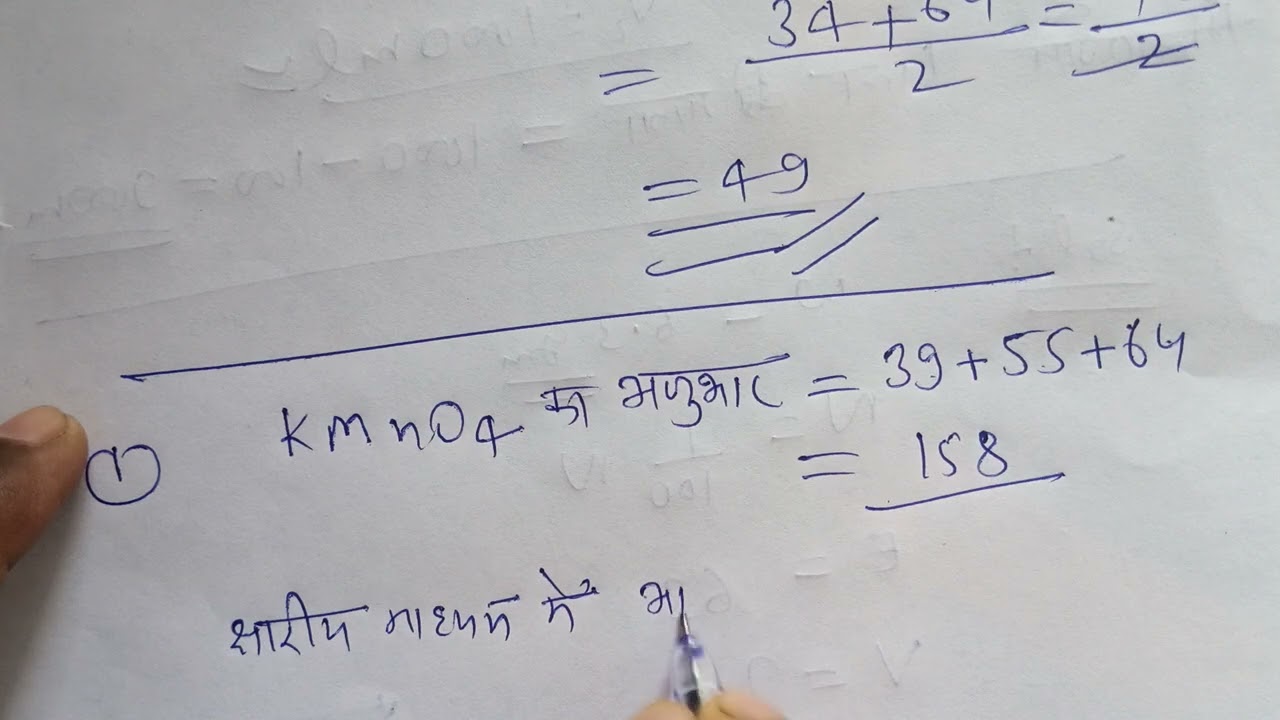 34+64/2 = /2
=
= 49
KMnO4 का अणुभार = 39+55+64
① = 158
क्षारीय माध्यम में भा